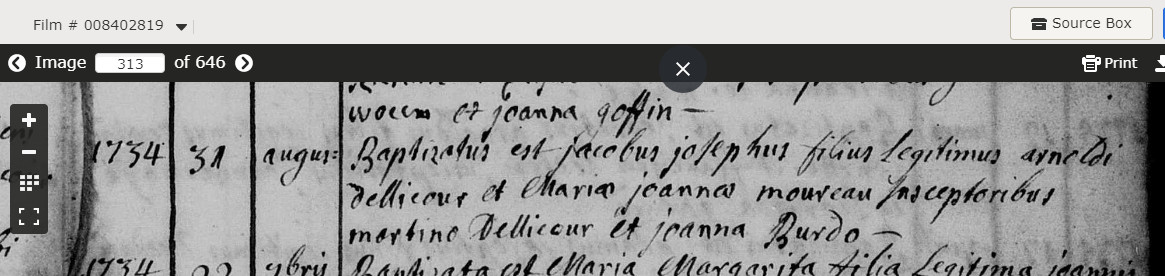 Film # 008402819
Source Box
Image 313 of 646
Print
woem et joanna goffin —
1734 31 augus: Baptizatus est jacobus josephus filius Legitimus arnoldi
Dellicour et Mariæ joannæ moureau susceptoribus
martino Dellicour et joanna Burdo —
1734 9bris Baptizata est Maria Margarita filia Legitima joannis